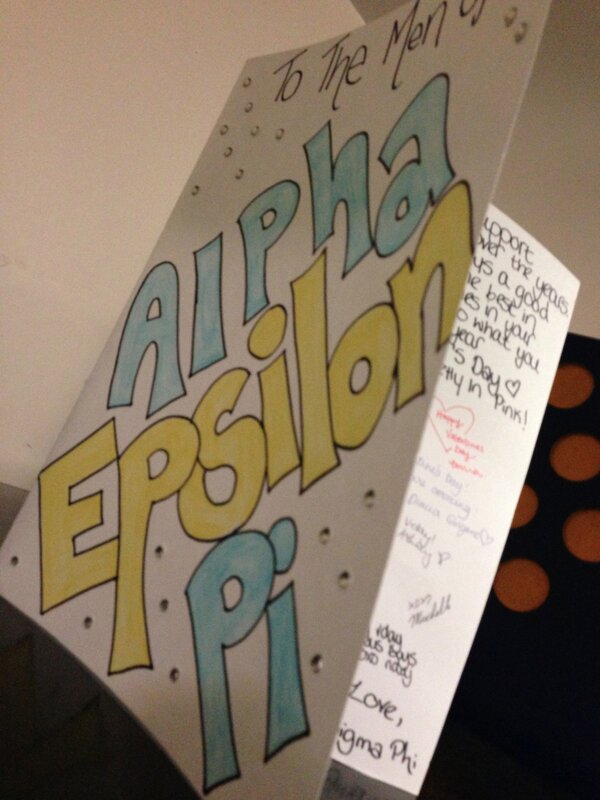 To The Men of
Alpha
Epsilon
Pi
upport
over the years.
ys a good
he best in
es in your
o what you
year
's Day ♡
etty in Pink!
Happy
Valentines
Day
Day!
amazing
♡
xoxo
rday
ous boys
Love,
igma Phi